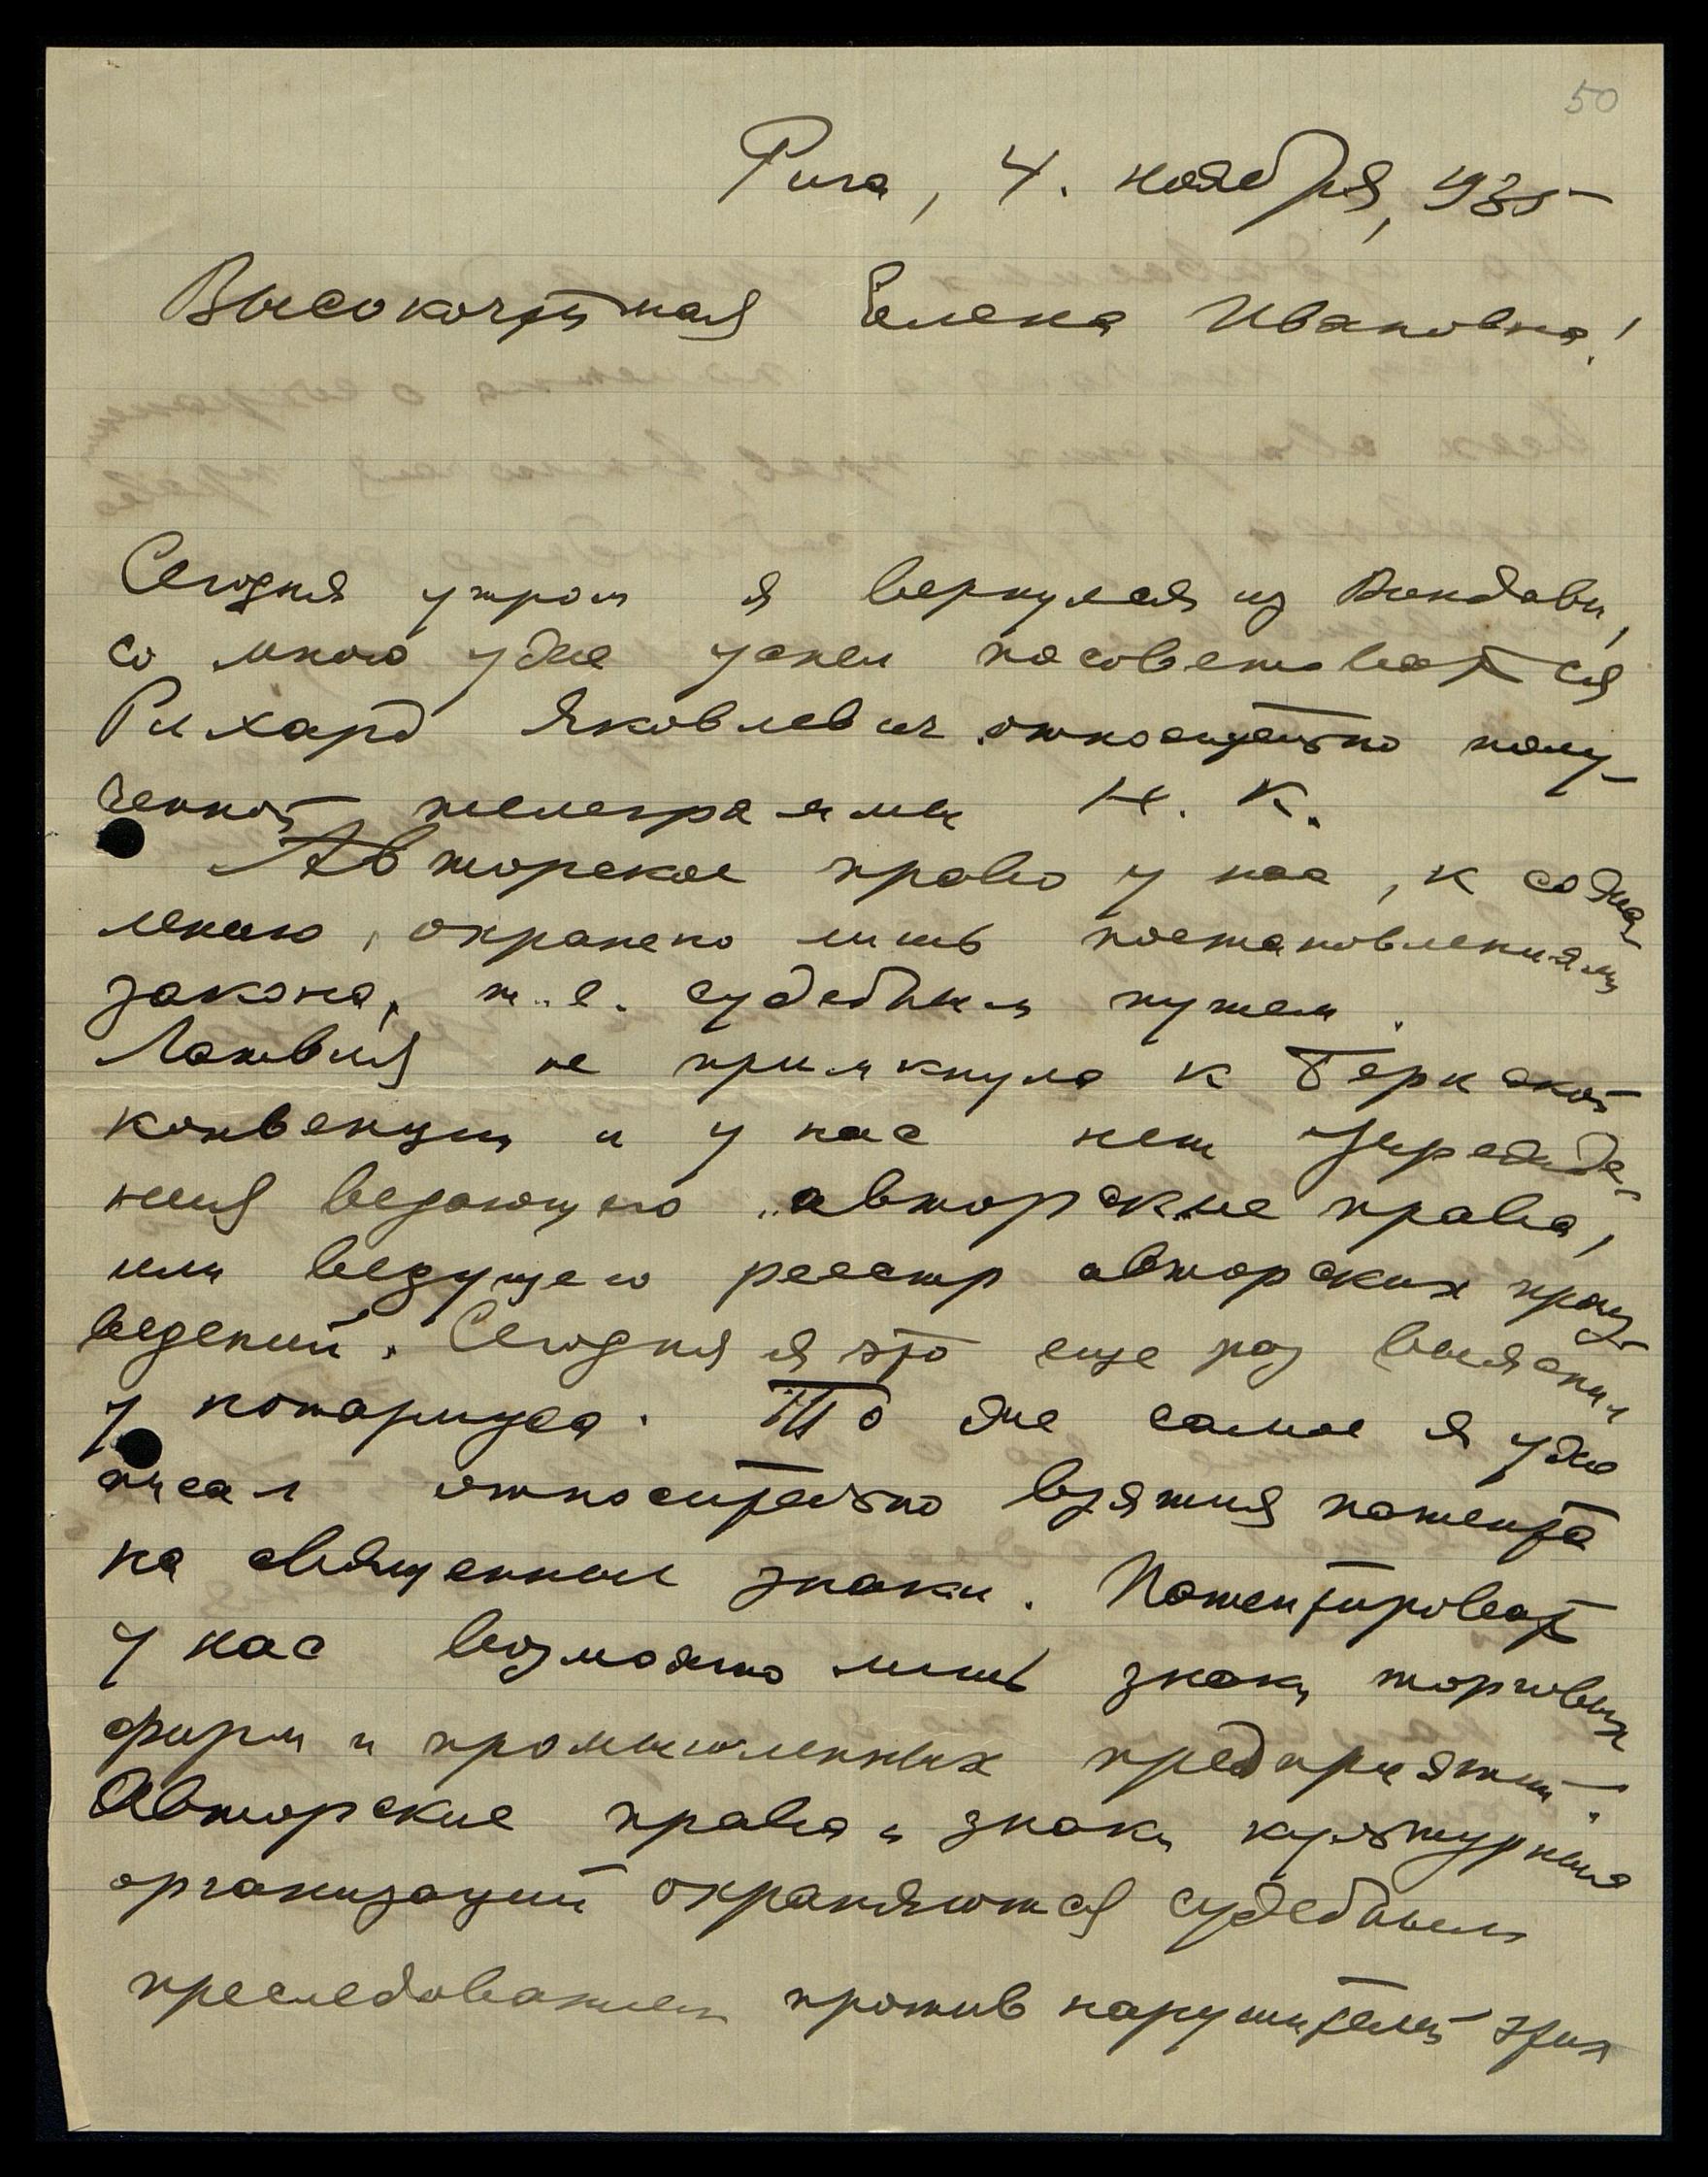 50
Рига, 4. ноября, 1935
Высокочтимая Елена Ивановна!
Сегодня утром я вернулся из Виндавы,
со мною уже успел посоветоваться
Рихард Яковлевич относительно полу-
ченной телеграммы Н. К.
Авторское право у нас, к сожа-
лению, охранено лишь постановлениями
закона, т. е. судебным путем.
Латвия не примкнула к Бернской
конвенции и у нас нет учрежде-
ния ведающего авторские права,
или ведущего реестр авторских произ-
ведений. Сегодня я это еще раз выяснил
у нотариуса. То же самое я уже
писал относительно взятия патента
на священные знаки. Патентировать
у нас возможно лишь знаки торговых
фирм и промышленных предприятий.
Авторские права и знаки культурных
организаций охраняются судебным
преследованием против нарушителей этих